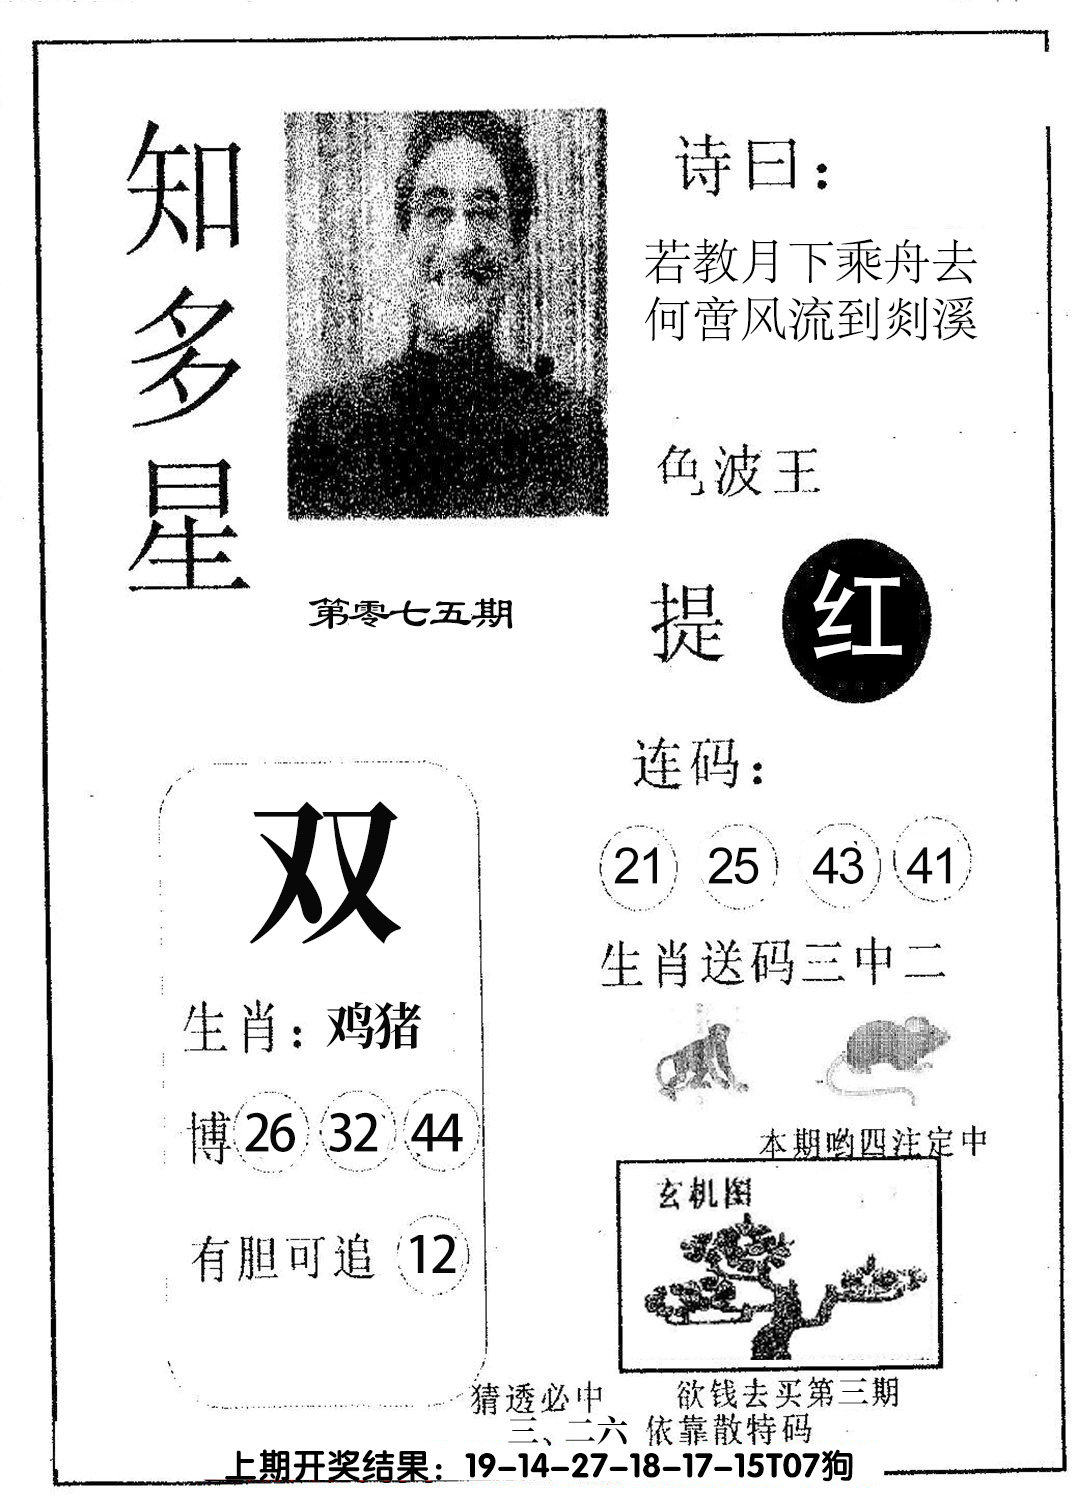 知多星
诗曰：
若教月下乘舟去
何啻风流到剡溪
色波王
第零七五期
提 红
连码：
21 25 43 41
双
生肖送码三中二
生肖：鸡猪
博 26 32 44
本期哟四注定中
玄机图
有胆可追 12
猜透必中 欲钱去买第三期
三、二六 依靠散特码
上期开奖结果：19-14-27-18-17-15T07狗